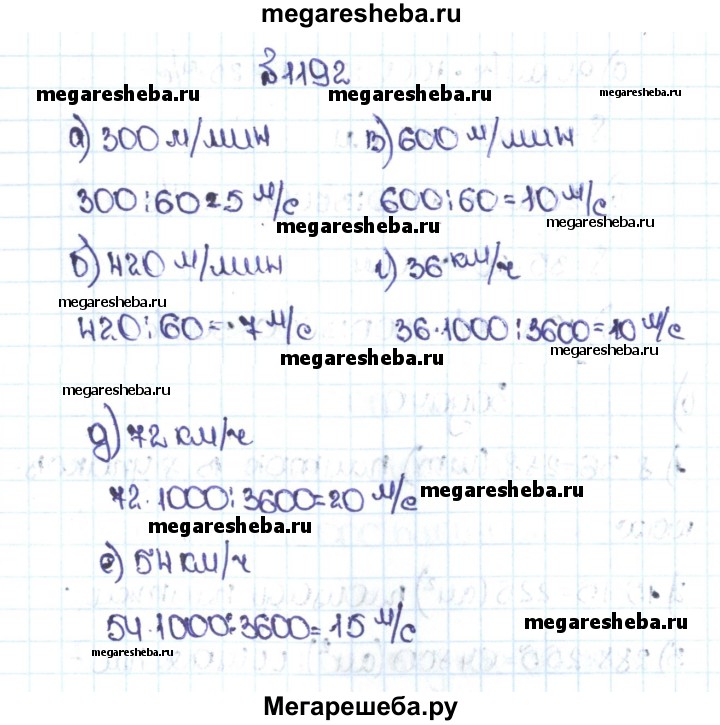 megaresheba.ru
№1192
megaresheba.ru megaresheba.ru megaresheba.ru
а) 300 м/мин в) 600 м/мин
300:60=5 м/с 600:60=10 м/с
megaresheba.ru megaresheba.ru
б) 420 м/мин г) 36 км/ч
megaresheba.ru
420:60=7 м/с 36·1000:3600=10 м/с
megaresheba.ru megaresheba.ru
megaresheba.ru
д) 72 км/ч
72·1000:3600=20 м/с megaresheba.ru
megaresheba.ru
е) 54 км/ч
54·1000:3600=15 м/с megaresheba.ru
megaresheba.ru
Мегарешеба.ру